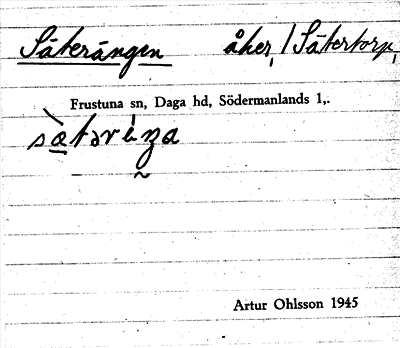 Säterängen åker, / Sätertorp,
Frustuna sn, Daga hd, Södermanlands l,.
Artur Ohlsson 1945